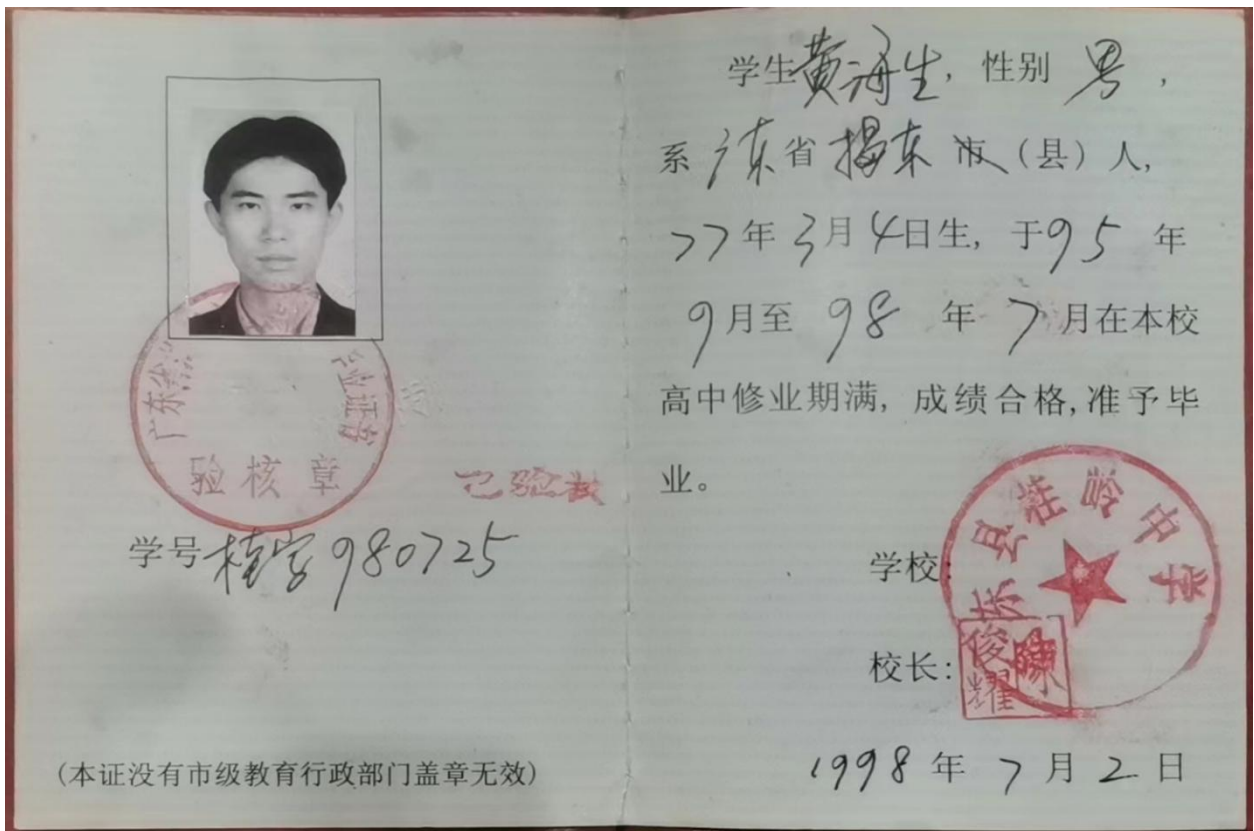 广东省
验核章
已验核
学号桂字980725
(本证没有市级教育行政部门盖章无效)
学生黄海生，性别 男，
系广东省揭东市（县）人，
77年3月4日生，于95年
9月至98年7月在本校
高中修业期满，成绩合格，准予毕
业。
学校：
东县桂岭中学
校长：
陈俊耀
1998年7月2日